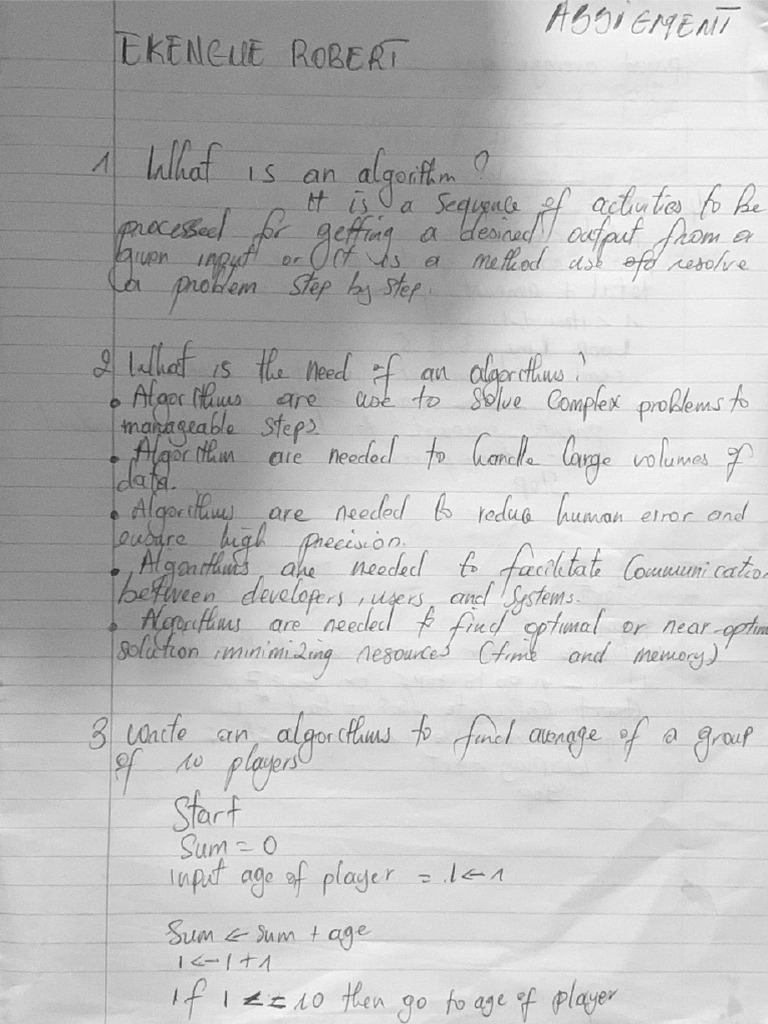 ASSIEMENT
EKENGUE ROBERT
1 What is an algorithm?
It is a sequence of activities to be
processed for getting a desired output from a
given input or It is a method use to resolve
a problem step by step.
2 What is the need of an algorithms?
• Algorithms are use to solve complex problems to
manageable steps
• Algorithm are needed to handle large volumes of
data.
• Algorithms are needed to reduce human error and
ensure high precision.
• Algorithms are needed to facilitate Communicatio
between developers, users and systems.
• Algorithms are needed to find optimal or near-optim
solution, minimizing resources (time and memory)
3 write an algorithms to find average of a group
of 10 players
Start
Sum = 0
input age of player = I ← 1
Sum ← sum + age
I ← I + 1
If I <= 10 then go to age of player